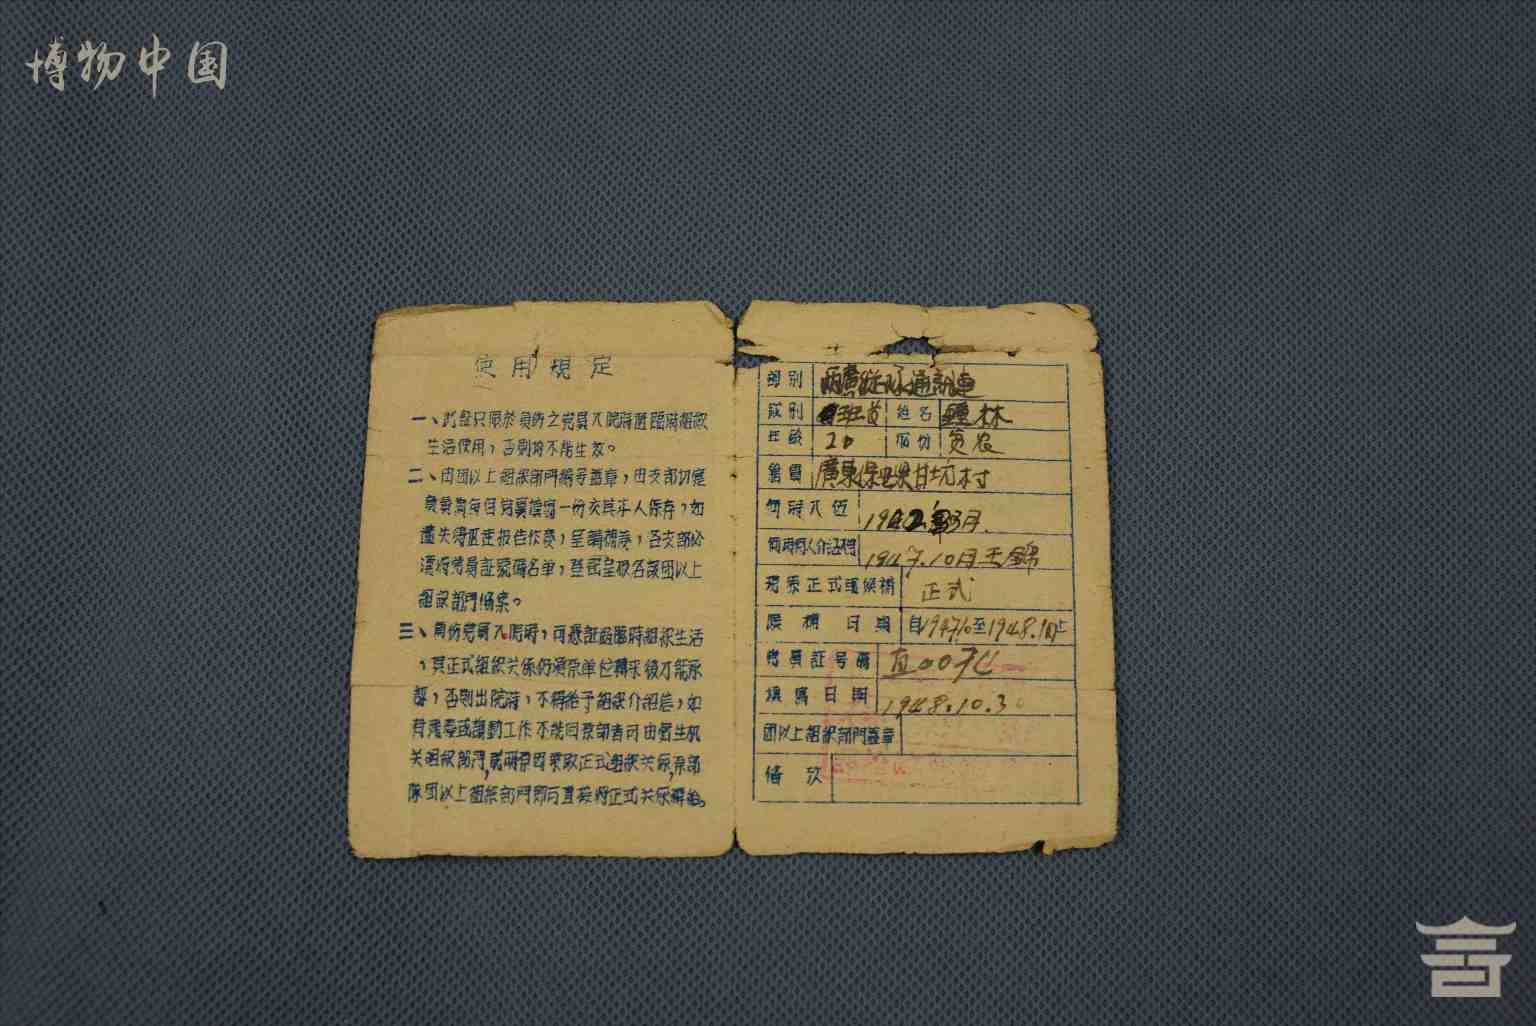 博物中国
使用規定
一、此証只限於負伤之党員入院時過臨時組織
生活使用，否則将不能生效。
二、由团以上組織部門編号蓋章，由支部切寔
負責為每个党員填写一份交其本人保存，如
遺失得亟速报告作廢，呈請補発，各支部必
須将党員証號碼名单，登記呈报各該团以上
組織部門備案。
三、負伤党員入院時，可憑証过臨時組織生活
，其正式組織关係仍須原单位轉来後才能承
認，否則出院時，不得給予組織介紹信，如
工作不能回原部者可由衛生机
关組織部門
隊团以上組織部門即后直接将正式关係轉給。
部別 兩廣縱队通訊連
職別 班員 姓名 鍾林
年齡 20 成份 貧农
籍貫 廣東保 甘坑村
何時入伍 1942年3月
何時何人介紹入党 1947.10月王錦
現系正式或候補 正式
候補日期 自1947.10至1948.10止
党員証号碼 直00
填寫日期 1948.10.30
团以上組織部門蓋章
備攷